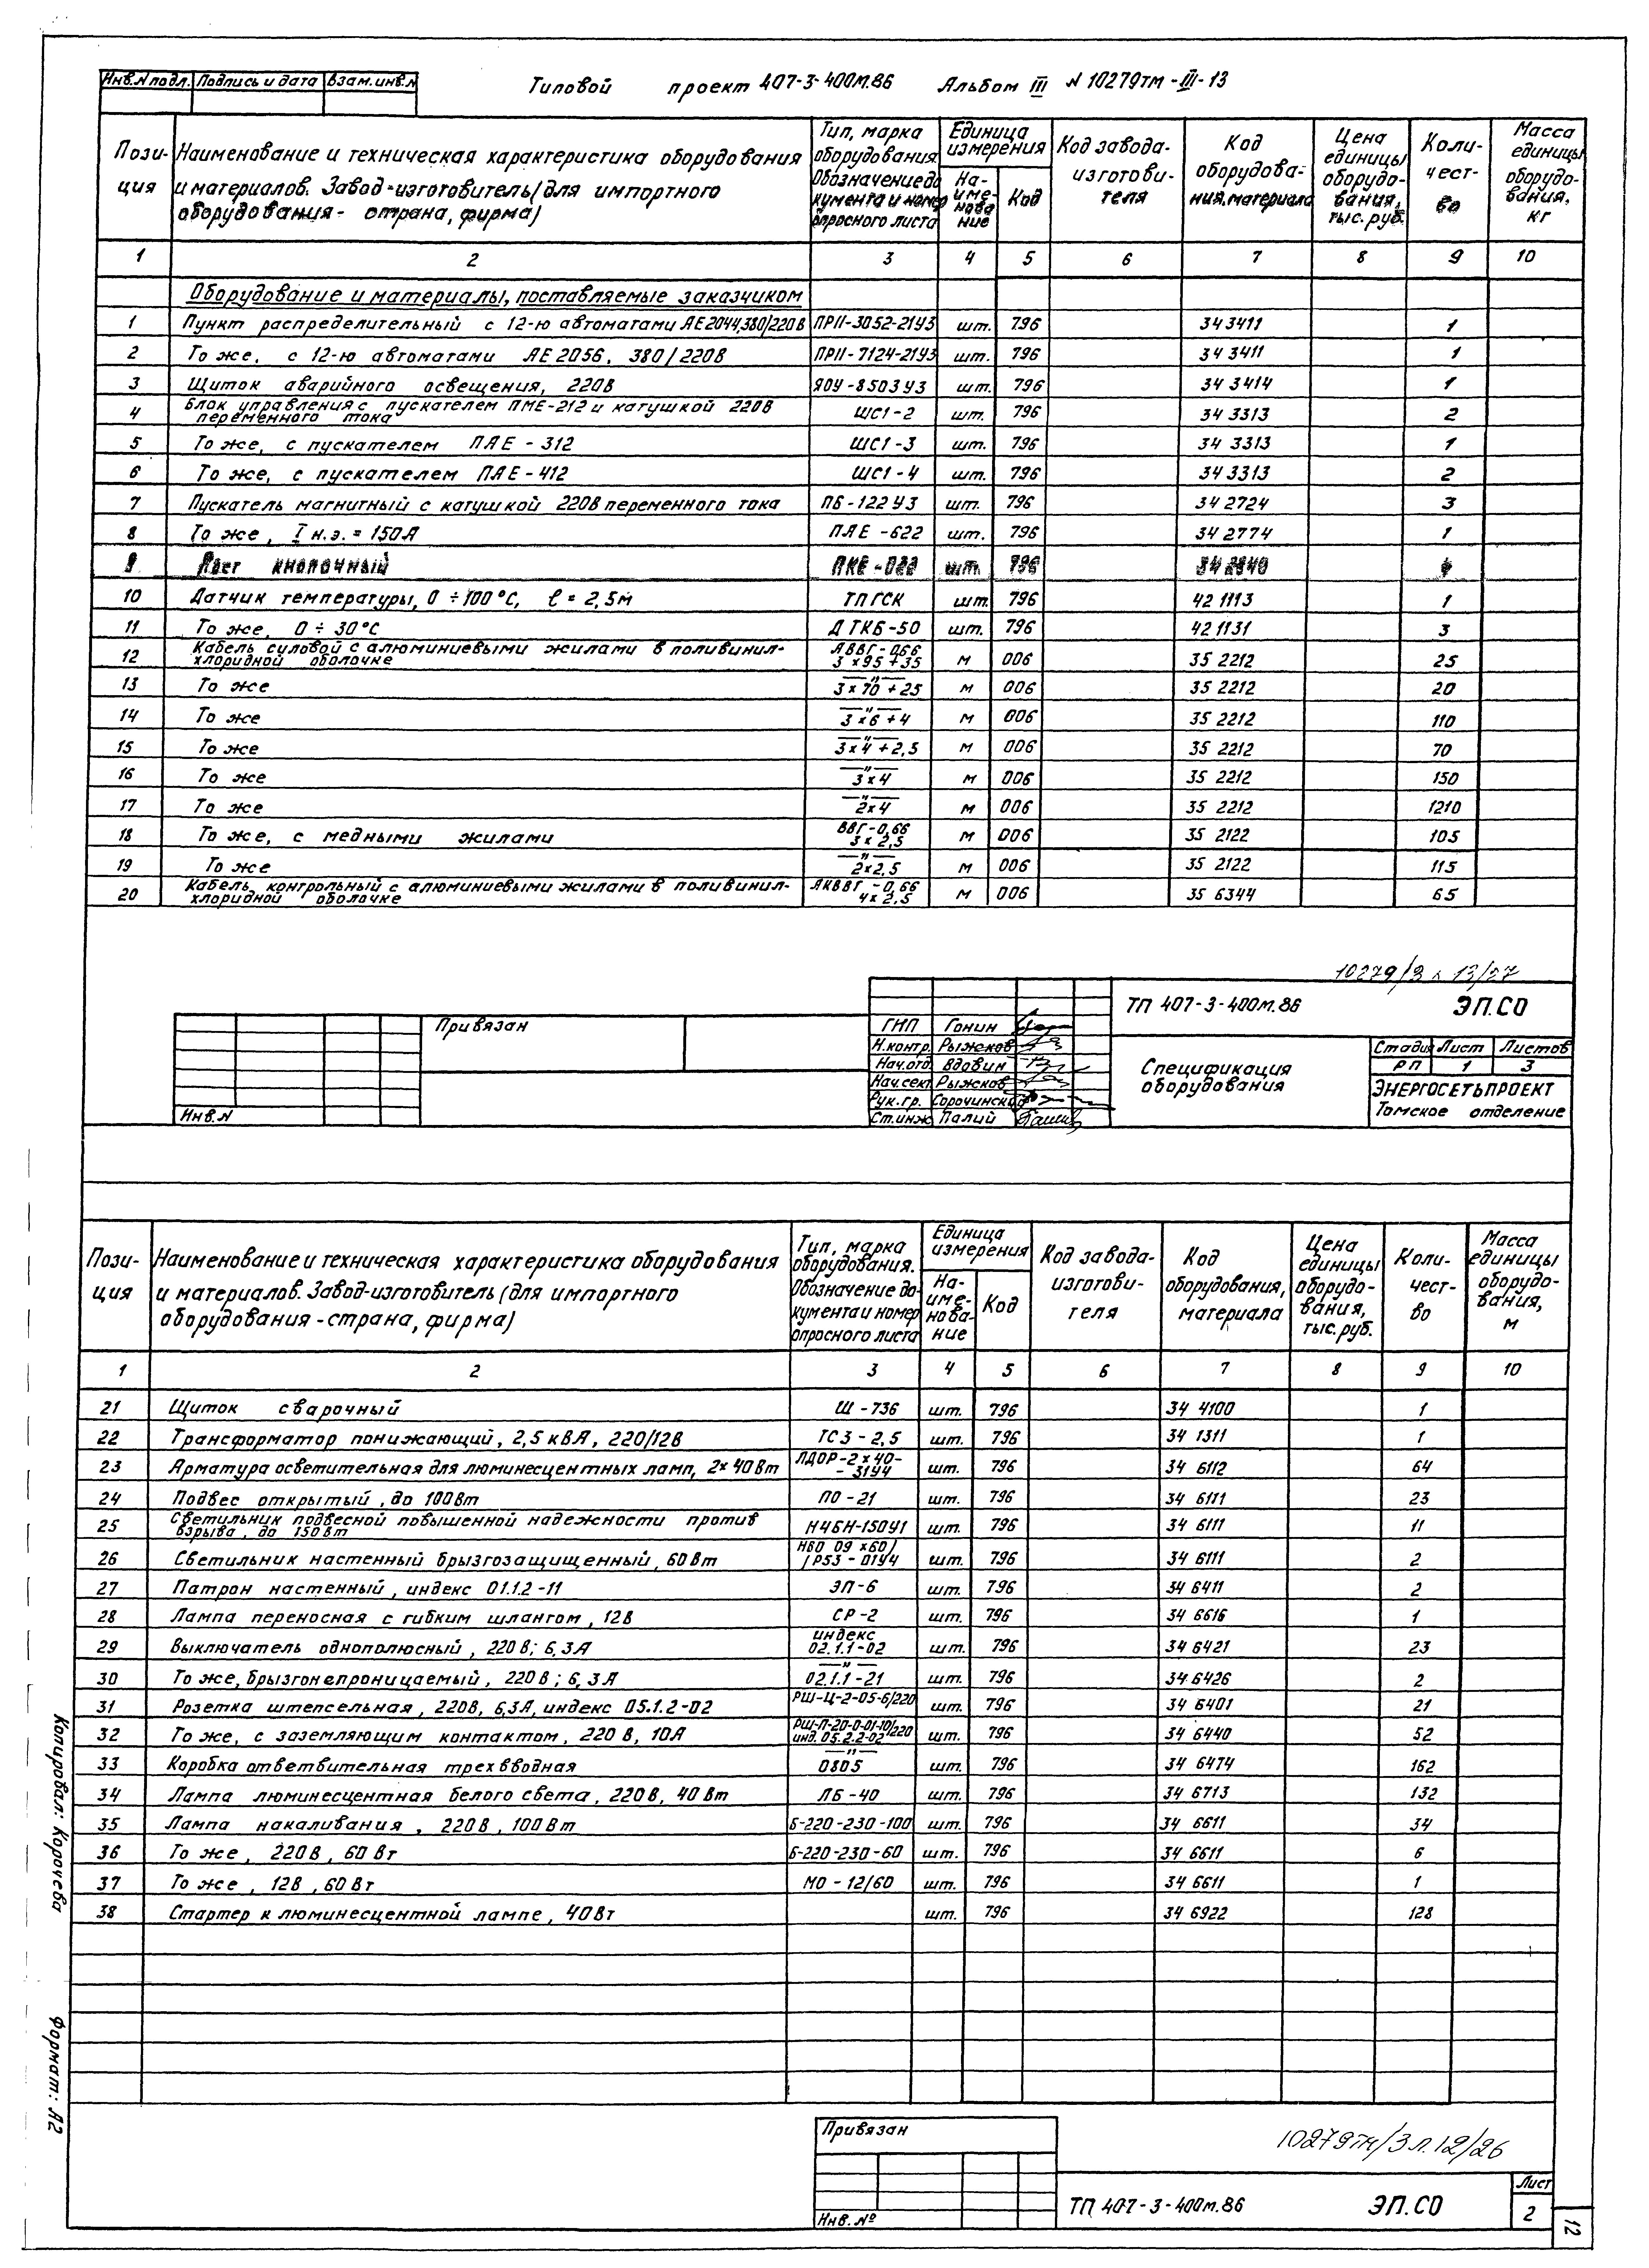 Инв.№ подл. Подпись и дата Взам.инв.№
Типовой проект 407-3-400м.86 Альбом III № 10279тм-III-13
Позиция
Наименование и техническая характеристика оборудования и материалов. Завод-изготовитель (для импортного оборудования - страна, фирма)
Тип, марка оборудования. Обозначение документа и номер опросного листа
Единица измерения
Наименование
Код
Код завода-изготовителя
Код оборудования, материала
Цена единицы оборудования, тыс. руб.
Количество
Масса единицы оборудования, кг
1 2 3 4 5 6 7 8 9 10
Оборудование и материалы, поставляемые заказчиком
1 Пункт распределительный с 12-ю автоматами АЕ2044, 380/220В ПР11-3052-21У3 шт. 796 34 3411 1
2 То же, с 12-ю автоматами АЕ2056, 380/220В ПР11-7124-21У3 шт. 796 34 3411 1
3 Щиток аварийного освещения, 220В ЯОУ-8503У3 шт. 796 34 3414 1
4 Блок управления с пускателем ПМЕ-212 и катушкой 220В переменного тока ШС1-2 шт. 796 34 3313 2
5 То же, с пускателем ПАЕ-312 ШС1-3 шт. 796 34 3313 1
6 То же, с пускателем ПАЕ-412 ШС1-4 шт. 796 34 3313 2
7 Пускатель магнитный с катушкой 220В переменного тока ПБ-122У3 шт. 796 34 2724 3
8 То же, Iн.э. = 150А ПАЕ-622 шт. 796 34 2774 1
9 Пост кнопочный ПКЕ-022 шт. 796
10 Датчик температуры, 0÷100°С, ℓ = 2,5м ТПГСК шт. 796 42 1113 1
11 То же, 0÷30°С ДТКБ-50 шт. 796 42 1131 3
12 Кабель силовой с алюминиевыми жилами в поливинилхлоридной оболочке АВВГ-0,66 3×95+35 м 006 35 2212 25
13 То же —"— 3×70+25 м 006 35 2212 20
14 То же —"— 3×6+4 м 006 35 2212 110
15 То же —"— 3×4+2,5 м 006 35 2212 70
16 То же —"— 3×4 м 006 35 2212 150
17 То же —"— 2×4 м 006 35 2212 1210
18 То же, с медными жилами ВВГ-0,66 3×2,5 м 006 35 2122 105
19 То же —"— 2×2,5 м 006 35 2122 115
20 Кабель контрольный с алюминиевыми жилами в поливинилхлоридной оболочке АКВВГ-0,66 4×2,5 м 006 35 6344 65
10279/3 л 13/27
Привязан
Инв.№
ГИП Гонин
Н.контр. Рыжков
Нач.отд. Вдовин
Нач.сект. Рыжков
Рук.гр. Сорочинская
Ст.инж. Палий
ТП 407-3-400м.86 ЭП.СО
Спецификация оборудования
Стадия Лист Листов
РП 1 3
ЭНЕРГОСЕТЬПРОЕКТ
Томское отделение
Позиция
Наименование и техническая характеристика оборудования и материалов. Завод-изготовитель (для импортного оборудования - страна, фирма)
Тип, марка оборудования. Обозначение документа и номер опросного листа
Единица измерения
Наименование
Код
Код завода-изготовителя
Код оборудования, материала
Цена единицы оборудования, тыс. руб.
Количество
Масса единицы оборудования, м
1 2 3 4 5 6 7 8 9 10
21 Щиток сварочный Ш-736 шт. 796 34 4100 1
22 Трансформатор понижающий, 2,5кВА, 220/12В ТСЗ-2,5 шт. 796 34 1311 1
23 Арматура осветительная для люминесцентных ламп, 2×40Вт ЛДОР-2×40--31У4 шт. 796 34 6112 64
24 Подвес открытый, до 100Вт ПО-21 шт. 796 34 6111 23
25 Светильник подвесной повышенной надежности против взрыва, до 150Вт Н4БН-150У1 шт. 796 34 6111 11
26 Светильник настенный брызгозащищенный, 60Вт НБО 09×60/ /Р53-01У4 шт. 796 34 6111 2
27 Патрон настенный, индекс 01.1.2-11 ЭП-6 шт. 796 34 6411 2
28 Лампа переносная с гибким шлангом, 12В СР-2 шт. 796 34 6616 1
29 Выключатель однополюсный, 220В; 6,3А индекс 02.1.1-02 шт. 796 34 6421 23
30 То же, брызгонепроницаемый, 220В; 6,3А —"— 02.1.1-21 шт. 796 34 6426 2
31 Розетка штепсельная, 220В, 6,3А, индекс 05.1.2-02 РШ-Ц-2-05-6/220 шт. 796 34 6401 21
32 То же, с заземляющим контактом, 220В, 10А РШ-П-20-0-01-10/220 инд. 05.2.2-02 шт. 796 34 6440 52
33 Коробка ответвительная трехвводная —"— 0805 шт. 796 34 6474 162
34 Лампа люминесцентная белого света, 220В, 40Вт ЛБ-40 шт. 796 34 6713 132
35 Лампа накаливания, 220В, 100Вт Б-220-230-100 шт. 796 34 6611 34
36 То же, 220В, 60Вт Б-220-230-60 шт. 796 34 6611 6
37 То же, 12В, 60Вт МО-12/60 шт. 796 34 6611 1
38 Стартер к люминесцентной лампе, 40Вт шт. 796 34 6922 128
Копировал: Корочева
Формат: А2
Привязан
Инв.№
10279тм/3 л.12/26
ТП 407-3-400м.86 ЭП.СО
Лист
2
12